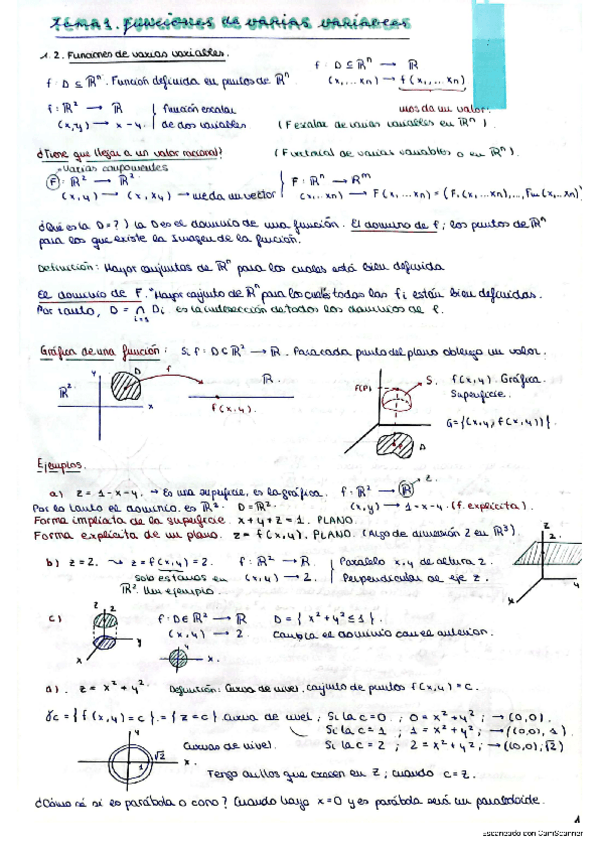 Tema 1. funciones de varias variables
1.2. Funciones de varias variables.
f: D ⊆ ℝⁿ → ℝ
f: D ⊆ ℝⁿ. Función definida en puntos de ℝⁿ
(x, ... xn) → f(x₁, ... xn)
f: ℝ² → ℝ } función escalar
nos da un valor.
(x,y) → x-y. } de dos variables
(F escalar de varias variables en ℝⁿ).
¿Tiene que llegar a un valor racional?
(F vectorial de varias variables o en ℝⁿ).
→ Varias componentes
F: ℝ² → ℝ²
(x,y) → (x, xy) → me da un vector
F: ℝⁿ → ℝᵐ
(x, ... xn) → F(x, ... xn) = (F₁(x, ... xn), ..., Fm(x, ... xn))
¿Qué es la D = ?) la D es el dominio de una función. El dominio de f; los puntos de ℝⁿ
para los que existe la imagen de la función.
Definición: Mayor conjuntos de ℝⁿ para los cuales está bien definida
El dominio de F. "Mayor conjunto de ℝⁿ para los cuales todas las fi están bien definidas.
Por tanto, D = ∩ Di. es la intersección de todos los dominios de f.
Gráfica de una función: Si f: D ⊂ ℝ² → ℝ. Para cada punto del plano obtengo un valor.
ℝ²
y
D
f
x
ℝ.
f(x,y).
F(P)
S.
D
f(x,y). Gráfica.
Superficie.
G = {(x,y, f(x,y))}.
Ejemplos.
a) z = 1-x-y. → Es una superficie, es la gráfica. f: ℝ² → ℝ
z.
Por lo tanto el dominio es ℝ². D = ℝ².
(x,y) → 1-x-y. (f. explícita).
Forma implícita de la superficie x+y+z = 1. PLANO.
Forma explícita de un plano. z = f(x,y). PLANO. (Algo de dimensión 2 en ℝ³).
b) z = 2. → z = f(x,y) = 2. f: ℝ² → ℝ { Paralelo x,y de altura 2.
solo estamos en (x,y) → 2. { Perpendicular al eje z.
ℝ². Un ejemplo.
z
2.
x
y
c)
z
2
y
x
f: D ∈ ℝ² → ℝ D = { x²+y² ≤ 1 }.
(x,y) → 2. Cambia el dominio con el anterior.
y
x.
d). z = x²+y². Definición: Curva de nivel, conjunto de puntos f(x,y) = c.
γc = { f(x,y) = c }. = { z = c } curva de nivel; Si la c = 0.; 0 = x²+y²; → (0,0).
Si la c = 1; 1 = x²+y²; → ((0,0), 1)
Si la c = 2; 2 = x²+y²; → ((0,0), √2)
y
1
√2
x.
Curvas de nivel.
Tengo anillos que crecen en z; cuando c = z.
¿Cómo sé si es parábola o cono? Cuando haya x = 0 y es parábola será un paraboloide.
1
Escaneado con CamScanner